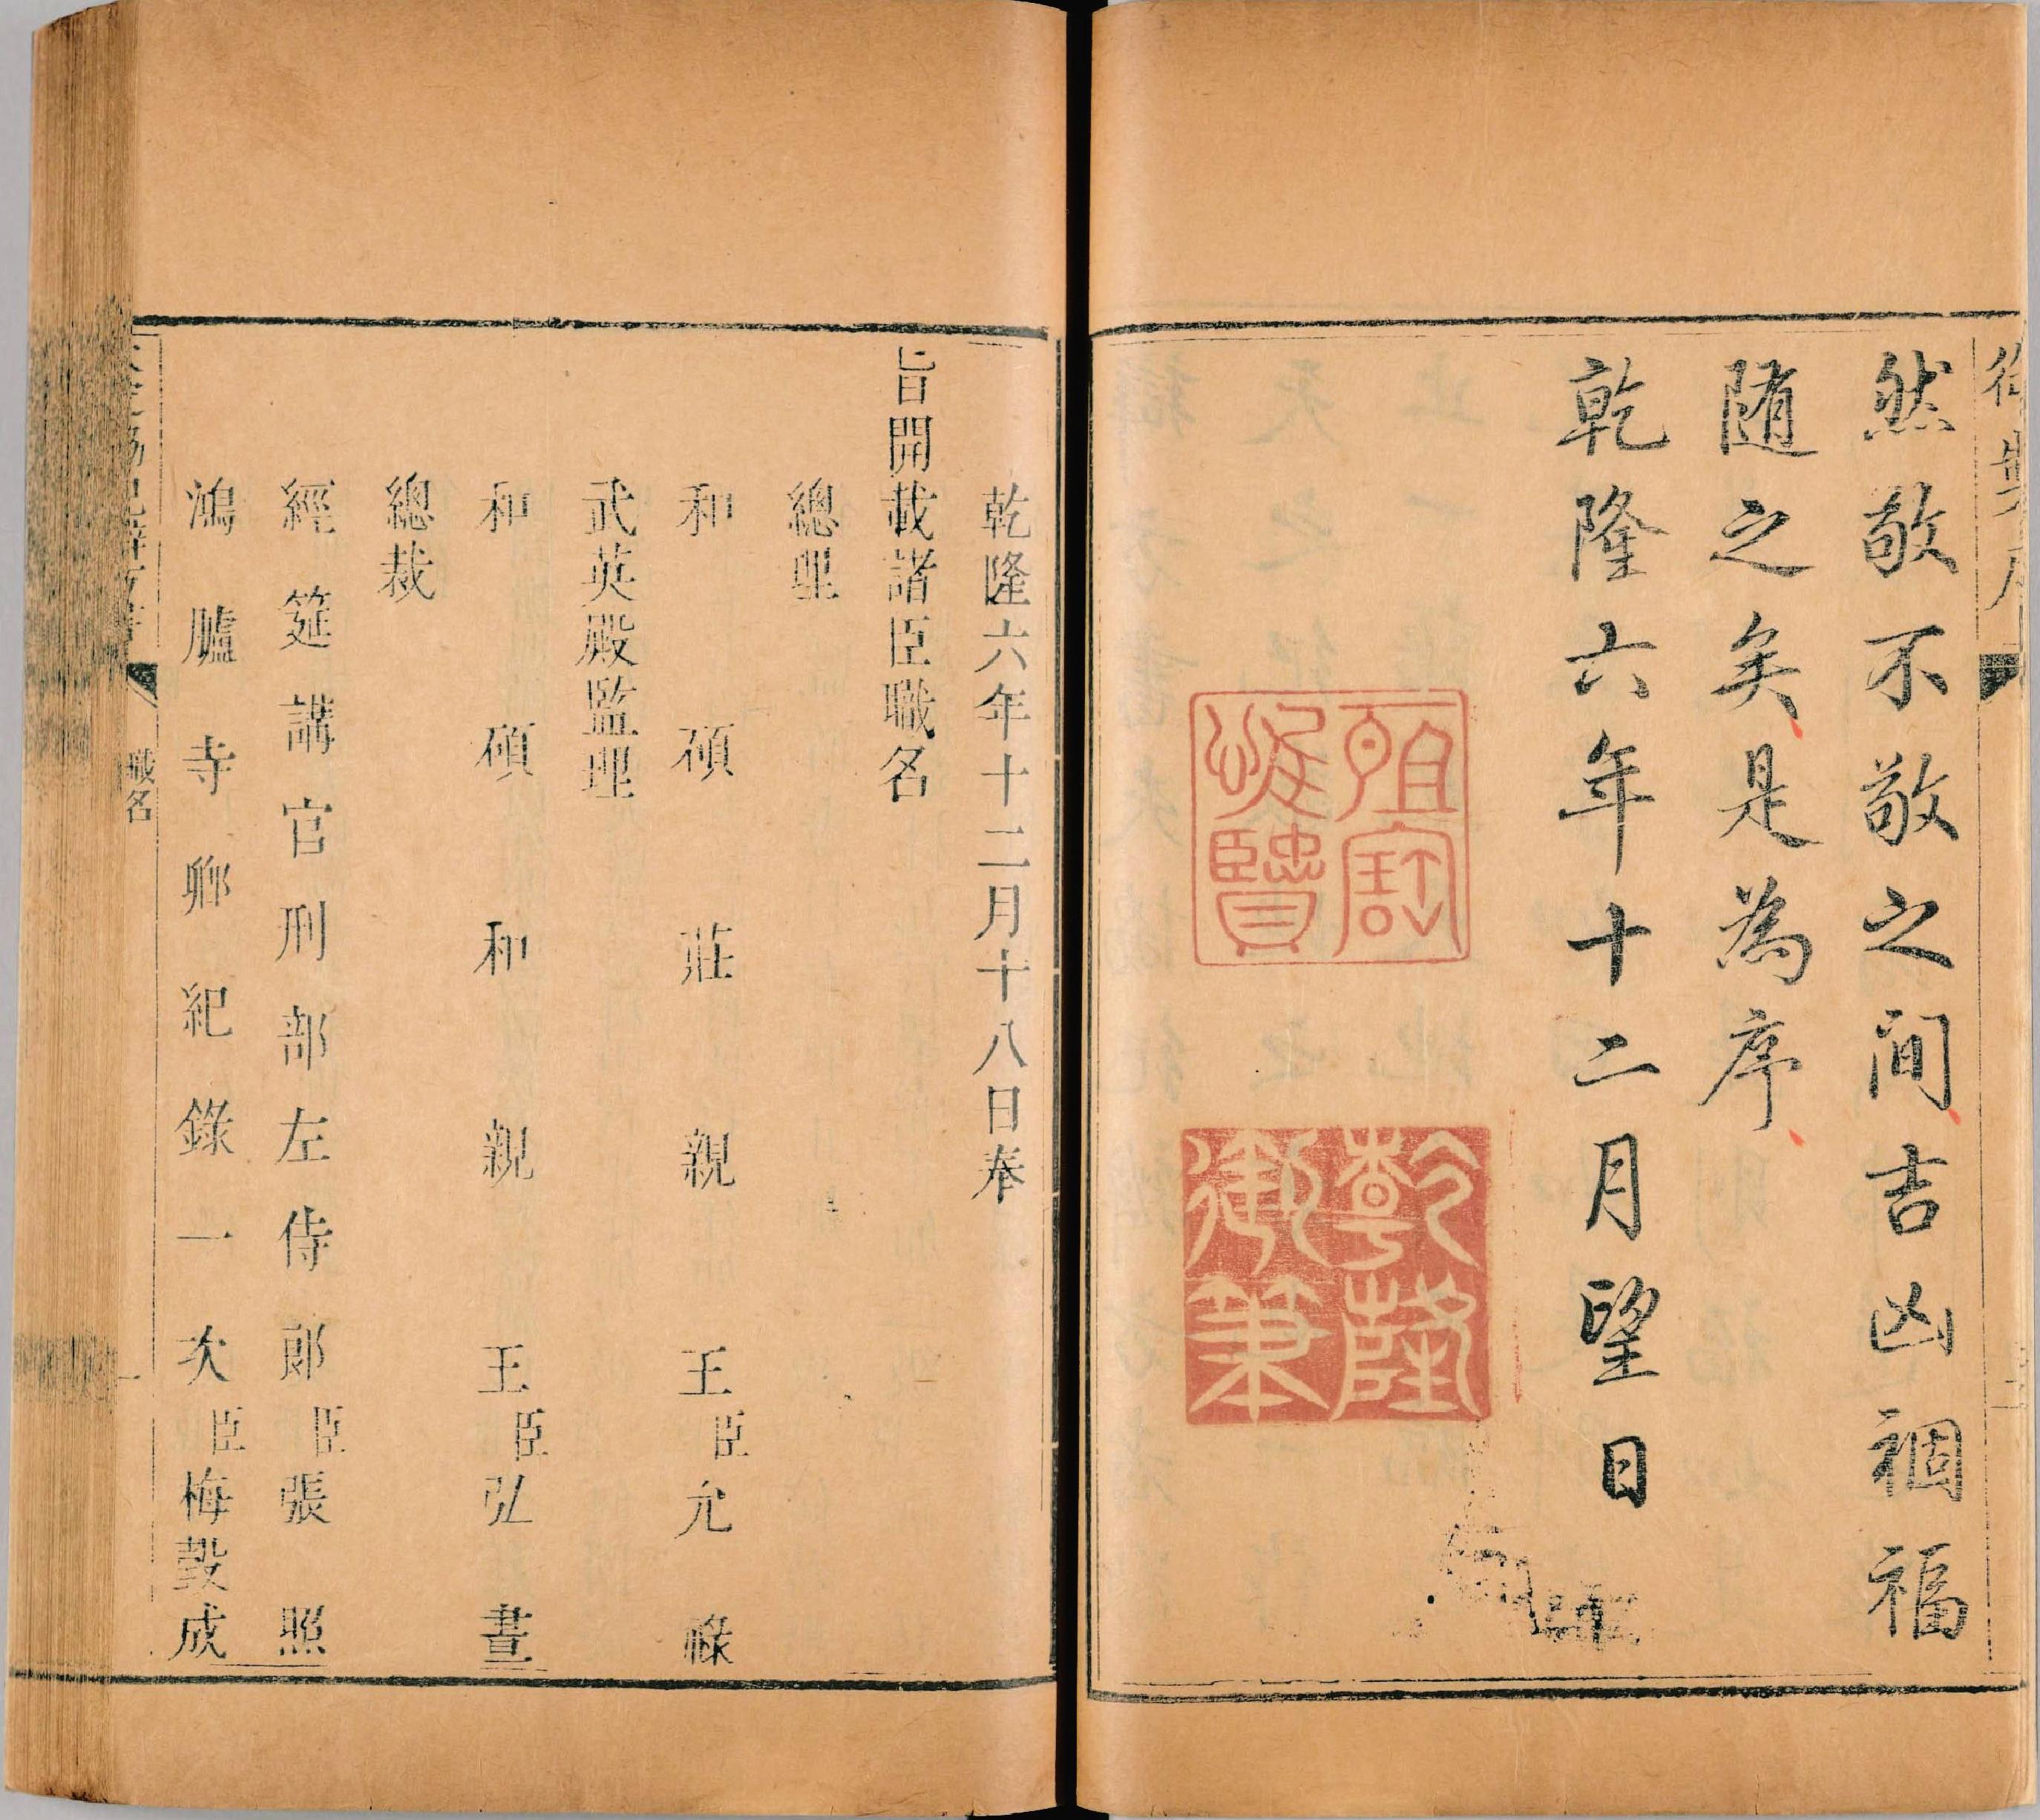 御製序
然敬不敬之間吉凶禍福
随之矣是為序
乾隆六年十二月望日
乾隆御筆
乾隆六年十二月十八日奉
旨開載諸臣職名
總理
和碩莊親王臣允祿
武英殿監理
和碩和親王臣弘晝
總裁
經筵講官刑部左侍郎臣張照
鴻臚寺卿紀錄一次臣梅瑴成
職名 一